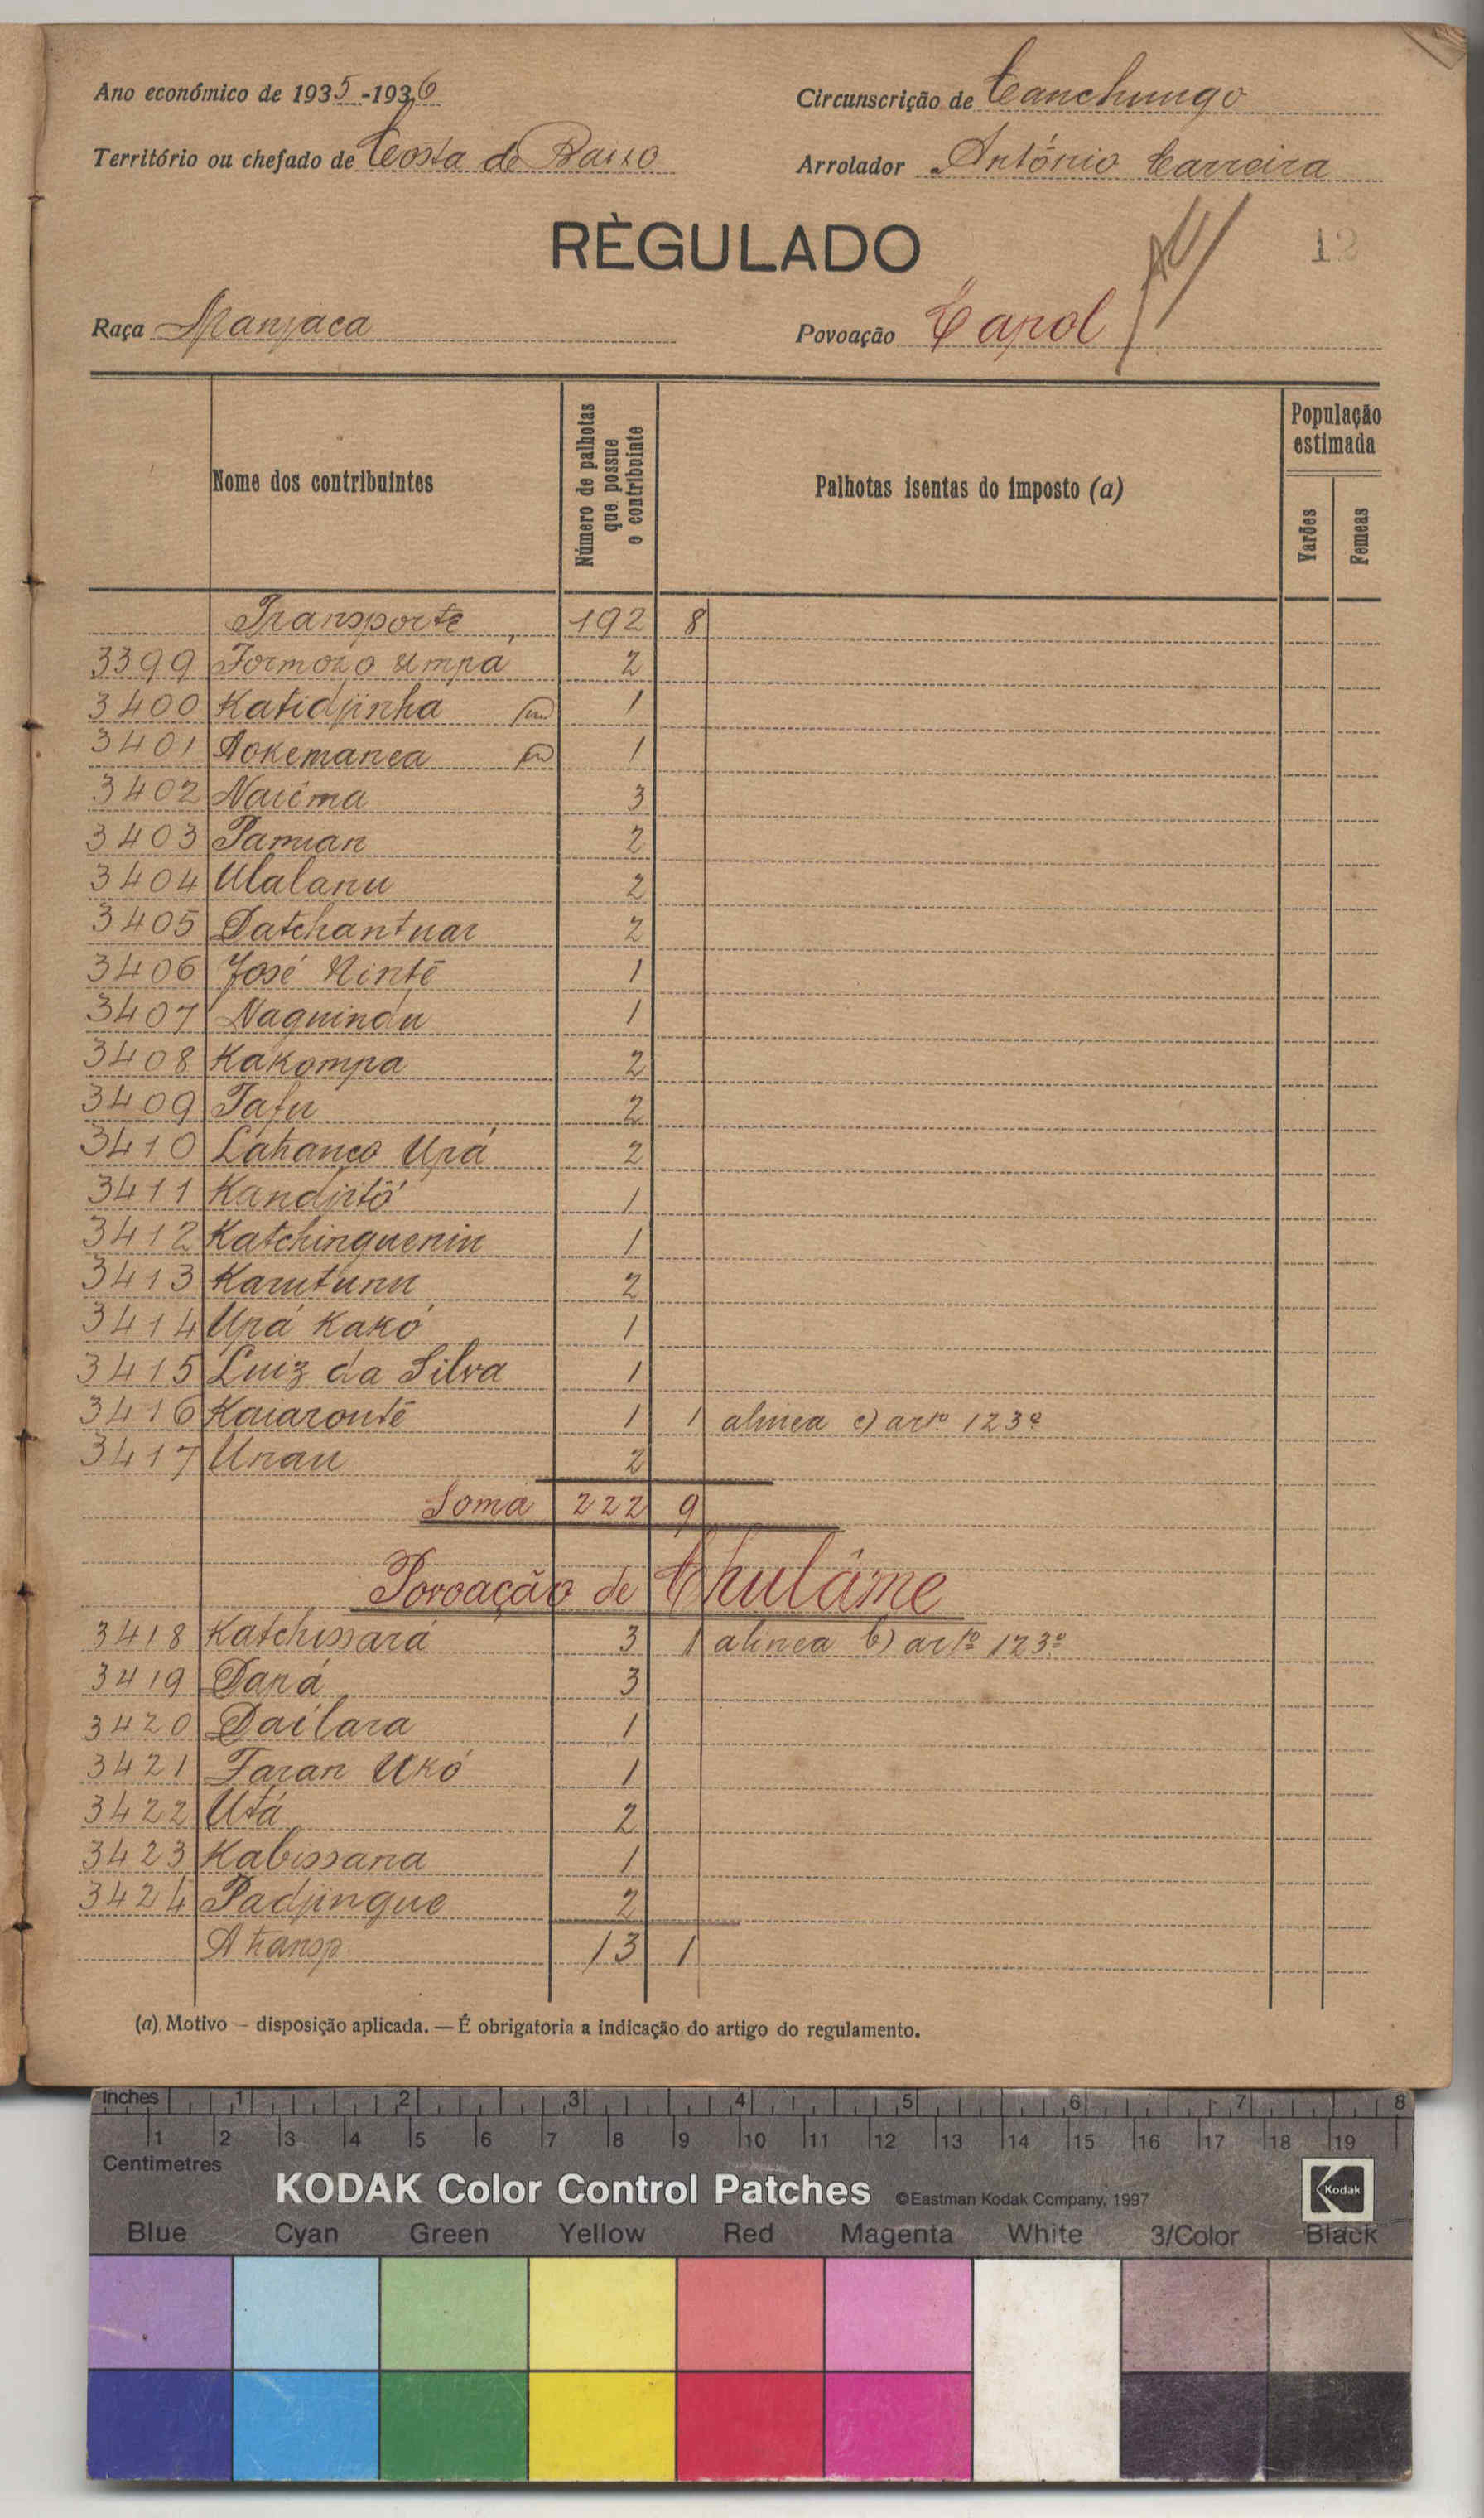 Ano económico de 1935-1936
Circunscrição de Canchungo
Território ou chefado de Costa de Baixo
Arrolador António Carreira
RÈGULADO
12
Raça Manjaca
Povoação Capol
Nome dos contribuintes
Número de palhotas que possue o contribuinte
Palhotas isentas do imposto (a)
População estimada
Varões
Femeas
Transporte 192 8
3399 Formozo Umpá 2
3400 Katidjinha 1
3401 Aokemanca 1
3402 Naiéma 3
3403 Pamian 2
3404 Ulalanu 2
3405 Datchantuar 2
3406 José Nintê 1
3407 Naguindu 1
3408 Kakompa 2
3409 Tafu 2
3410 Lahanco Upá 2
3411 Kandjitó 1
3412 Katchinguenin 1
3413 Karutunu 2
3414 Upá Kakó 1
3415 Luiz da Silva 1
3416 Kaiarontê 1 1 alinea c) artº. 123º
3417 Unau 2
Soma 222 9
Povoação de Chulâme
3418 Katchissará 3 1 alinea b) artº 123º
3419 Daná 3
3420 Dailara 1
3421 Faran Ukó 1
3422 Utá 2
3423 Kabissana 1
3424 Padjingue 2
A transp. 13 1
(a). Motivo — disposição aplicada. — É obrigatoria a indicação do artigo do regulamento.
Inches 1 2 3 4 5 6 7 8
1 2 3 4 5 6 7 8 9 10 11 12 13 14 15 16 17 18 19
Centimetres
KODAK Color Control Patches ©Eastman Kodak Company, 1997 Kodak
Blue Cyan Green Yellow Red Magenta White 3/Color Black